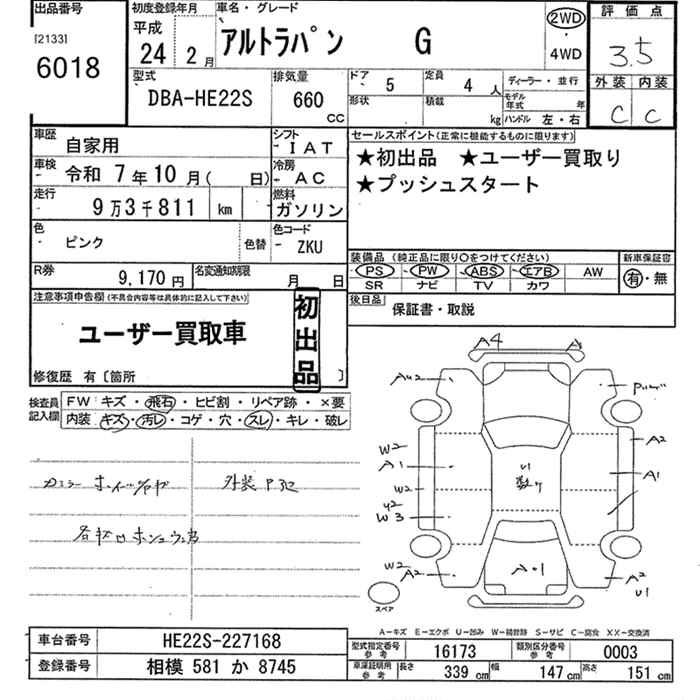 出品番号
[2133]
6018
初度登録年月
平成
24 2月
車名・グレード
アルトラパン G
2WD
・
4WD
評価点
3.5
外装 内装
C C
型式
DBA-HE22S
排気量
660
CC
ドア 5
定員 4 人
形状
積載 kg
ディーラー・並行
モデル年式 年
ハンドル 左・右
車歴 自家用
シフト IAT
車検 令和 7年10月( 日)
冷房 AC
走行 9万3千811 km
燃料 ガソリン
色 ピンク 色替
色コード ZKU
R券 9,170円
名変通知期限 月 日
セールスポイント(正常に機能するものに限ります)
★初出品 ★ユーザー買取り
★プッシュスタート
装備品 (純正品に限り〇をつけてください)
新車保証書
PS PW ABS エアB AW
SR ナビ TV カワ
有・無
後日品
保証書・取説
注意事項申告欄(不具合内容等は具体的に記入して下さい)
ユーザー買取車
初出品
修復歴 有〔箇所 〕
検査員記入欄
FW キズ・飛石・ヒビ割・リペア跡・×要
内装 キズ・汚レ・コゲ・穴・スレ・キレ・破レ
A4 A
W2
A1
A2
A1
W2
W3
W2
A2
A・1
A2
U1
スペア
A-キズ E-エクボ U-凹み W-補修跡 S-サビ C-腐食 XX-交換済
車台番号 HE22S-227168
登録番号 相模 581 か 8745
型式指定番号 参考 16173
類別区分番号 参考 0003
車庫証明用 参考 長さ 339 cm 幅 147 cm 高さ 151 cm